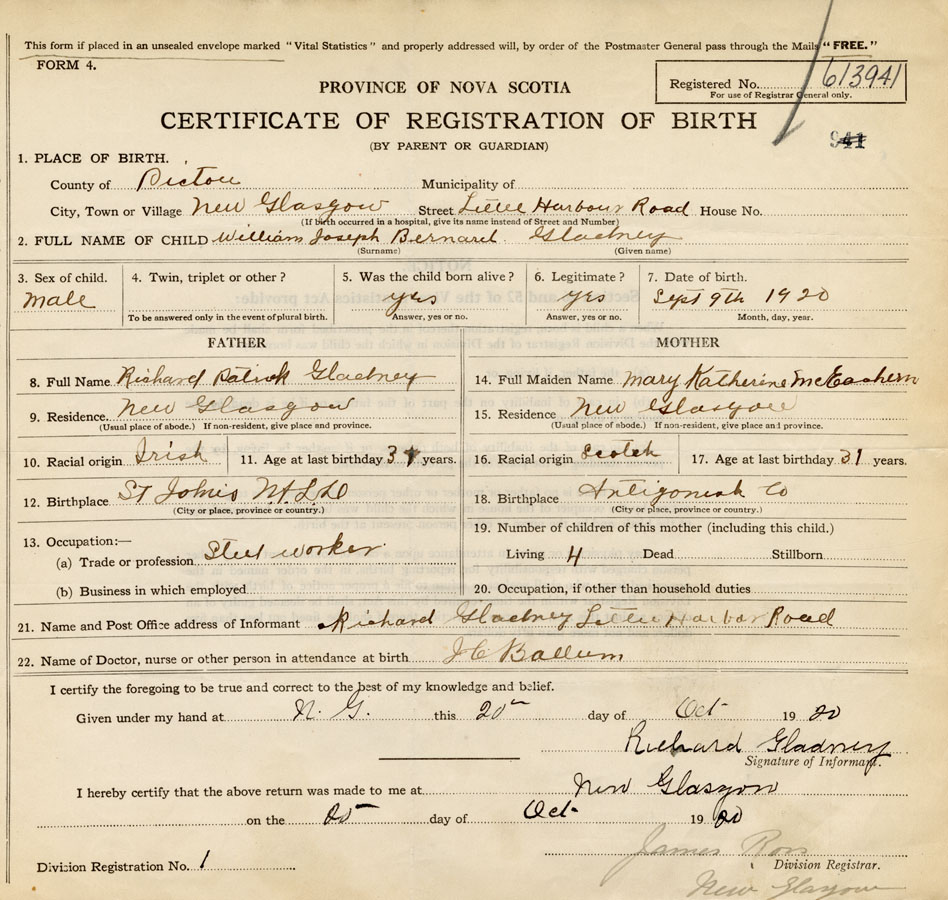 This form if placed in an unsealed envelope marked "Vital Statistics" and properly addressed will, by order of the Postmaster General pass through the Mails "FREE."
FORM 4.
Registered No. 613941
For use of Registrar General only.
PROVINCE OF NOVA SCOTIA
CERTIFICATE OF REGISTRATION OF BIRTH
941
(BY PARENT OR GUARDIAN)
1. PLACE OF BIRTH.
County of Pictou Municipality of
City, Town or Village New Glasgow Street Little Harbour Road House No.
(If birth occurred in a hospital, give its name instead of Street and Number)
2. FULL NAME OF CHILD William Joseph Bernard Gladney
(Surname) (Given name)
3. Sex of child. 4. Twin, triplet or other? 5. Was the child born alive? 6. Legitimate? 7. Date of birth.
Male yes yes Sept 9th 1920
To be answered only in the event of plural birth. Answer, yes or no. Answer, yes or no. Month, day, year.
FATHER MOTHER
8. Full Name Richard Patrick Gladney 14. Full Maiden Name Mary Katherine McEachern
9. Residence. New Glasgow 15. Residence New Glasgow
(Usual place of abode.) If non-resident, give place and province. (Usual place of abode.) If non-resident, give place and province.
10. Racial origin Irish 11. Age at last birthday years. 16. Racial origin Scotch 17. Age at last birthday 31 years.
12. Birthplace St Johns Nfld 18. Birthplace Antigonish Co
(City or place, province or country.) (City or place, province or country.)
19. Number of children of this mother (including this child.)
13. Occupation:—
(a) Trade or profession Steel worker Living 4 Dead Stillborn
(b) Business in which employed 20. Occupation, if other than household duties
21. Name and Post Office address of Informant Richard Gladney Little Harbor Road
22. Name of Doctor, nurse or other person in attendance at birth
I certify the foregoing to be true and correct to the best of my knowledge and belief.
Given under my hand at N. G. this 20th day of Oct 1920
Richard Gladney
Signature of Informant.
I hereby certify that the above return was made to me at New Glasgow
on the day of Oct 1920
James Ross
Division Registration No. 1 Division Registrar.
New Glasgow